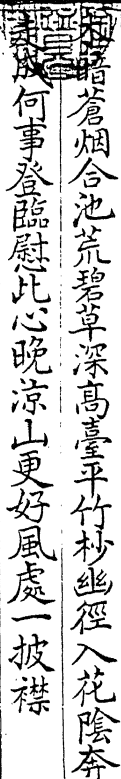 暗蒼烟合池荒碧草深高臺平竹杪幽徑入花陰奔
成何事登臨慰此心晚涼山更好風處一披襟